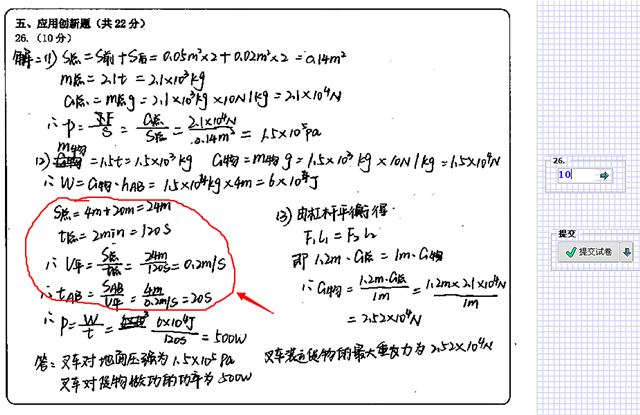 五、应用创新题（共22分）
26.（10分）
解：(1) S总=S前+S后=0.05m²×2+0.02m²×2=0.14m²
m总=2.1t=2.1×10³kg
G总=m总g=2.1×10³kg×10N/kg=2.1×10⁴N
∴P=F/S=G总/S总=2.1×10⁴N/0.14m²=1.5×10⁵Pa
(2) m物=1.5t=1.5×10³kg G物=m物g=1.5×10³kg×10N/kg=1.5×10⁴N
∴W=G物·hAB=1.5×10⁴kg×4m=6×10⁴J
S总=4m+20m=24m
t总=2min=120S
∴V平=S总/t总=24m/120S=0.2m/S
∴tAB=SAB/V平=4m/0.2m/S=20S
∴P=W/t=6×10⁴J/120S=500W
(3) 由杠杆平衡得
F₁L₁=F₂L₂
即1.2m·G总=1m·G物
∴G物=1.2m·G总/1m=1.2m×2.1×10⁴N/1m
=2.52×10⁴N
答：叉车对地面压强为1.5×10⁵Pa 叉车装运货物的最大重力为2.52×10⁴N
叉车对货物做功的功率为500W
26.
10
提交
提交试卷